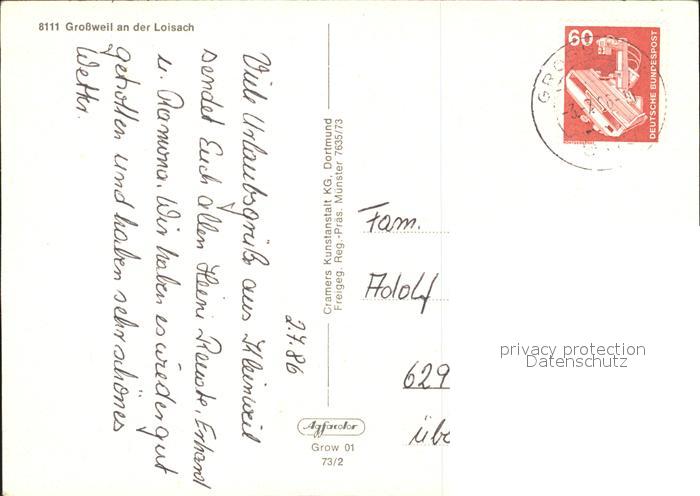 8111 Großweil an der Loisach
Viele Urlaubsgrüße aus Kleinweil
sendet Euch allen Heini Renate, Erhard
u. Ramona. Wir haben es wieder gut
getroffen und haben sehr schönes
Wetter.
2.7.86
Cramers Kunstanstalt KG, Dortmund
Freigeg. Reg.-Präs. Münster 7635/73
Agfacolor
Grow 01
73/2
60
DEUTSCHE BUNDESPOST
Fam.
Adolf
629
übe
privacy protection
Datenschutz